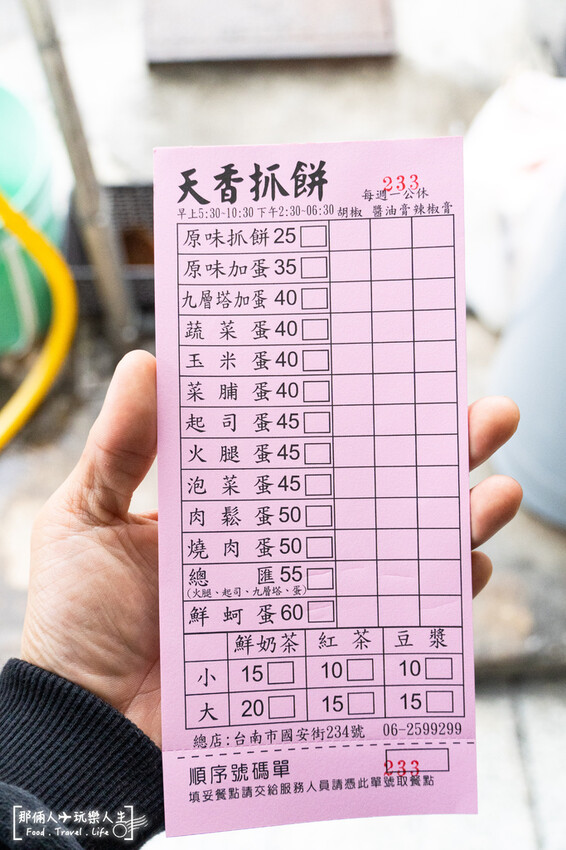 天香抓餅
233
每週一公休
早上5:30~10:30 下午2:30~06:30 胡椒 醬油膏 辣椒膏
原味抓餅 25
原味加蛋 35
九層塔加蛋 40
蔬菜蛋 40
玉米蛋 40
菜脯蛋 40
起司蛋 45
火腿蛋 45
泡菜蛋 45
肉鬆蛋 50
燒肉蛋 50
總匯 55
(火腿、起司、九層塔、蛋)
鮮蚵蛋 60
鮮奶茶 紅茶 豆漿
小 15 10 10
大 20 15 15
總店:台南市國安街234號 06-2599299
順序號碼單 233
填妥餐點請交給服務人員請憑此單號取餐點
那倆人玩樂人生
Food . Travel . Life